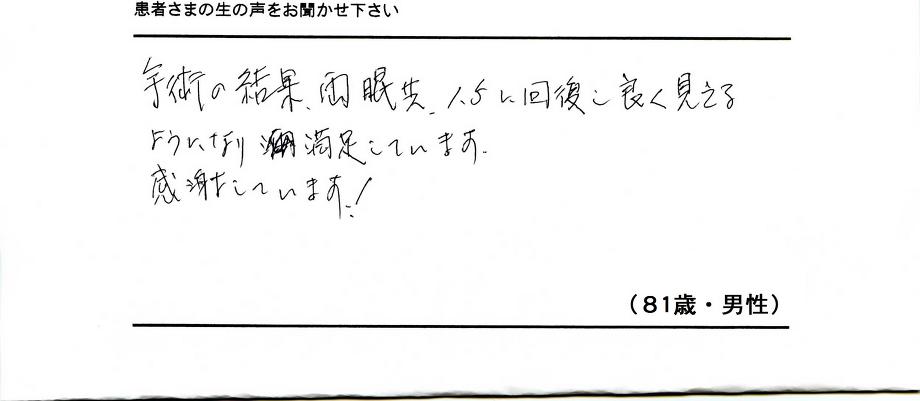 患者さまの生の声をお聞かせ下さい
手術の結果、両眼共、1.5に回復し良く見える
ようになり 満足しています。
感謝しています!
（81歳・男性）